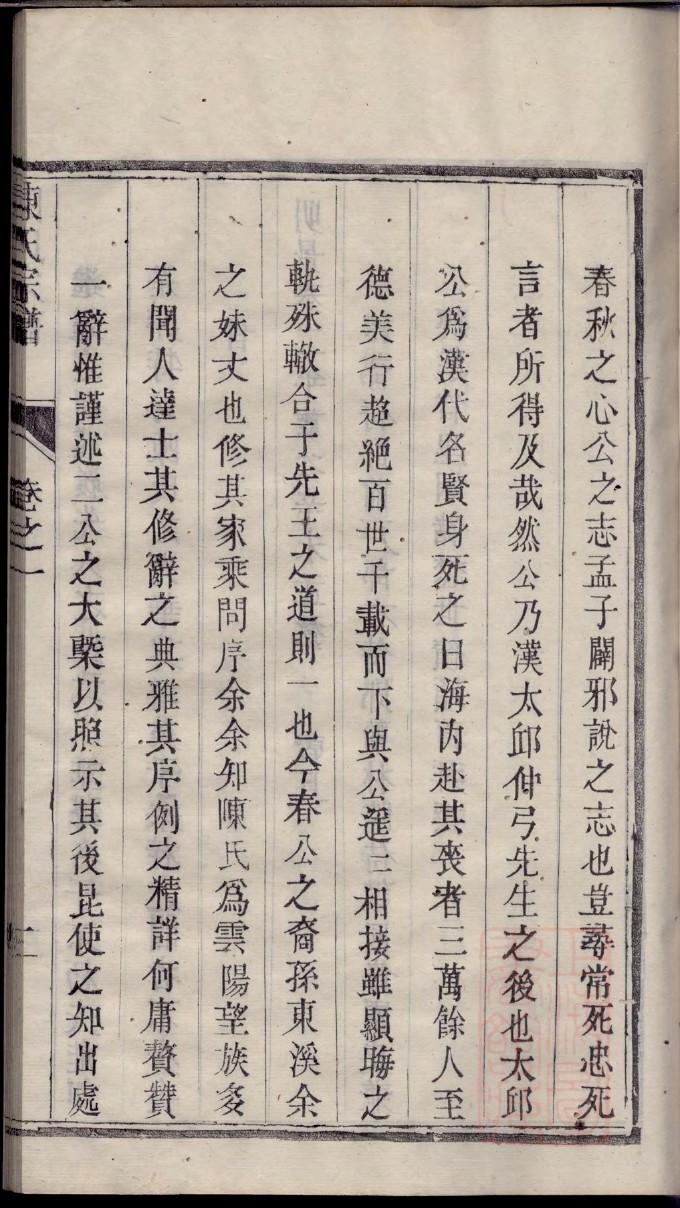 春秋之心公之志孟子闢邪說之志也豈尋常死忠死
言者所得及哉然公乃漢太邱仲弓先生之後也太邱
公爲漢代名賢身死之日海內赴其喪者三萬餘人至
德美行超絕百世千載而下與公遥二相接雖顯晦之
軌殊轍合于先王之道則一也今春公之裔孫東溪余
之妹丈也修其家乘問序余余知陳氏爲雲陽望族多
有聞人達士其修辭之典雅其序例之精詳何庸贅贊
一辭惟謹述二公之大槩以照示其後昆使之知出處
陳氏宗譜
卷之一
二